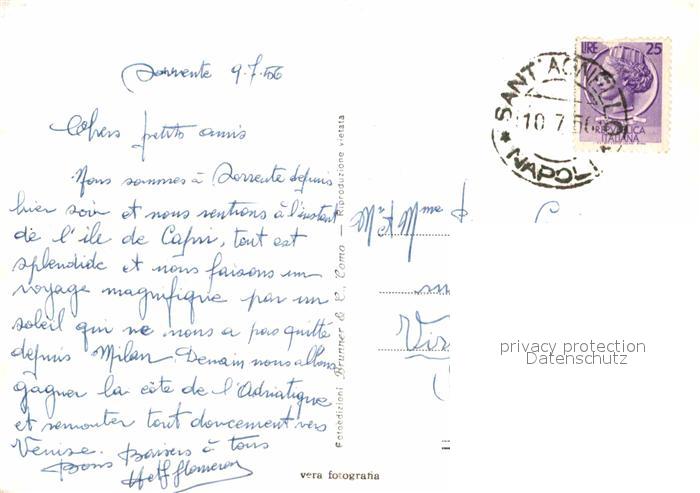 Sorrente 9.7.56
Chers petits amis
Nous sommes à Sorrente depuis
hier soir et nous rentrons à l'instant
de l'ile de Capri, tout est
splendide et nous faisons un
voyage magnifique par un
soleil qui ne nous a pas quitté
depuis Milan. Demain nous allons
gagner la côte de l'Adriatique
et remonter tout doucement vers
Venise. Baisers à tous
Bons
Mr et Mme
LIRE 25
REPVBBLICA
ITALIANA
SANT'AGNELLO
10 7 56
* NAPOLI *
Fotoedizioni Brunner & C., Como - Riproduzione vietata
vera fotografia
privacy protection
Datenschutz